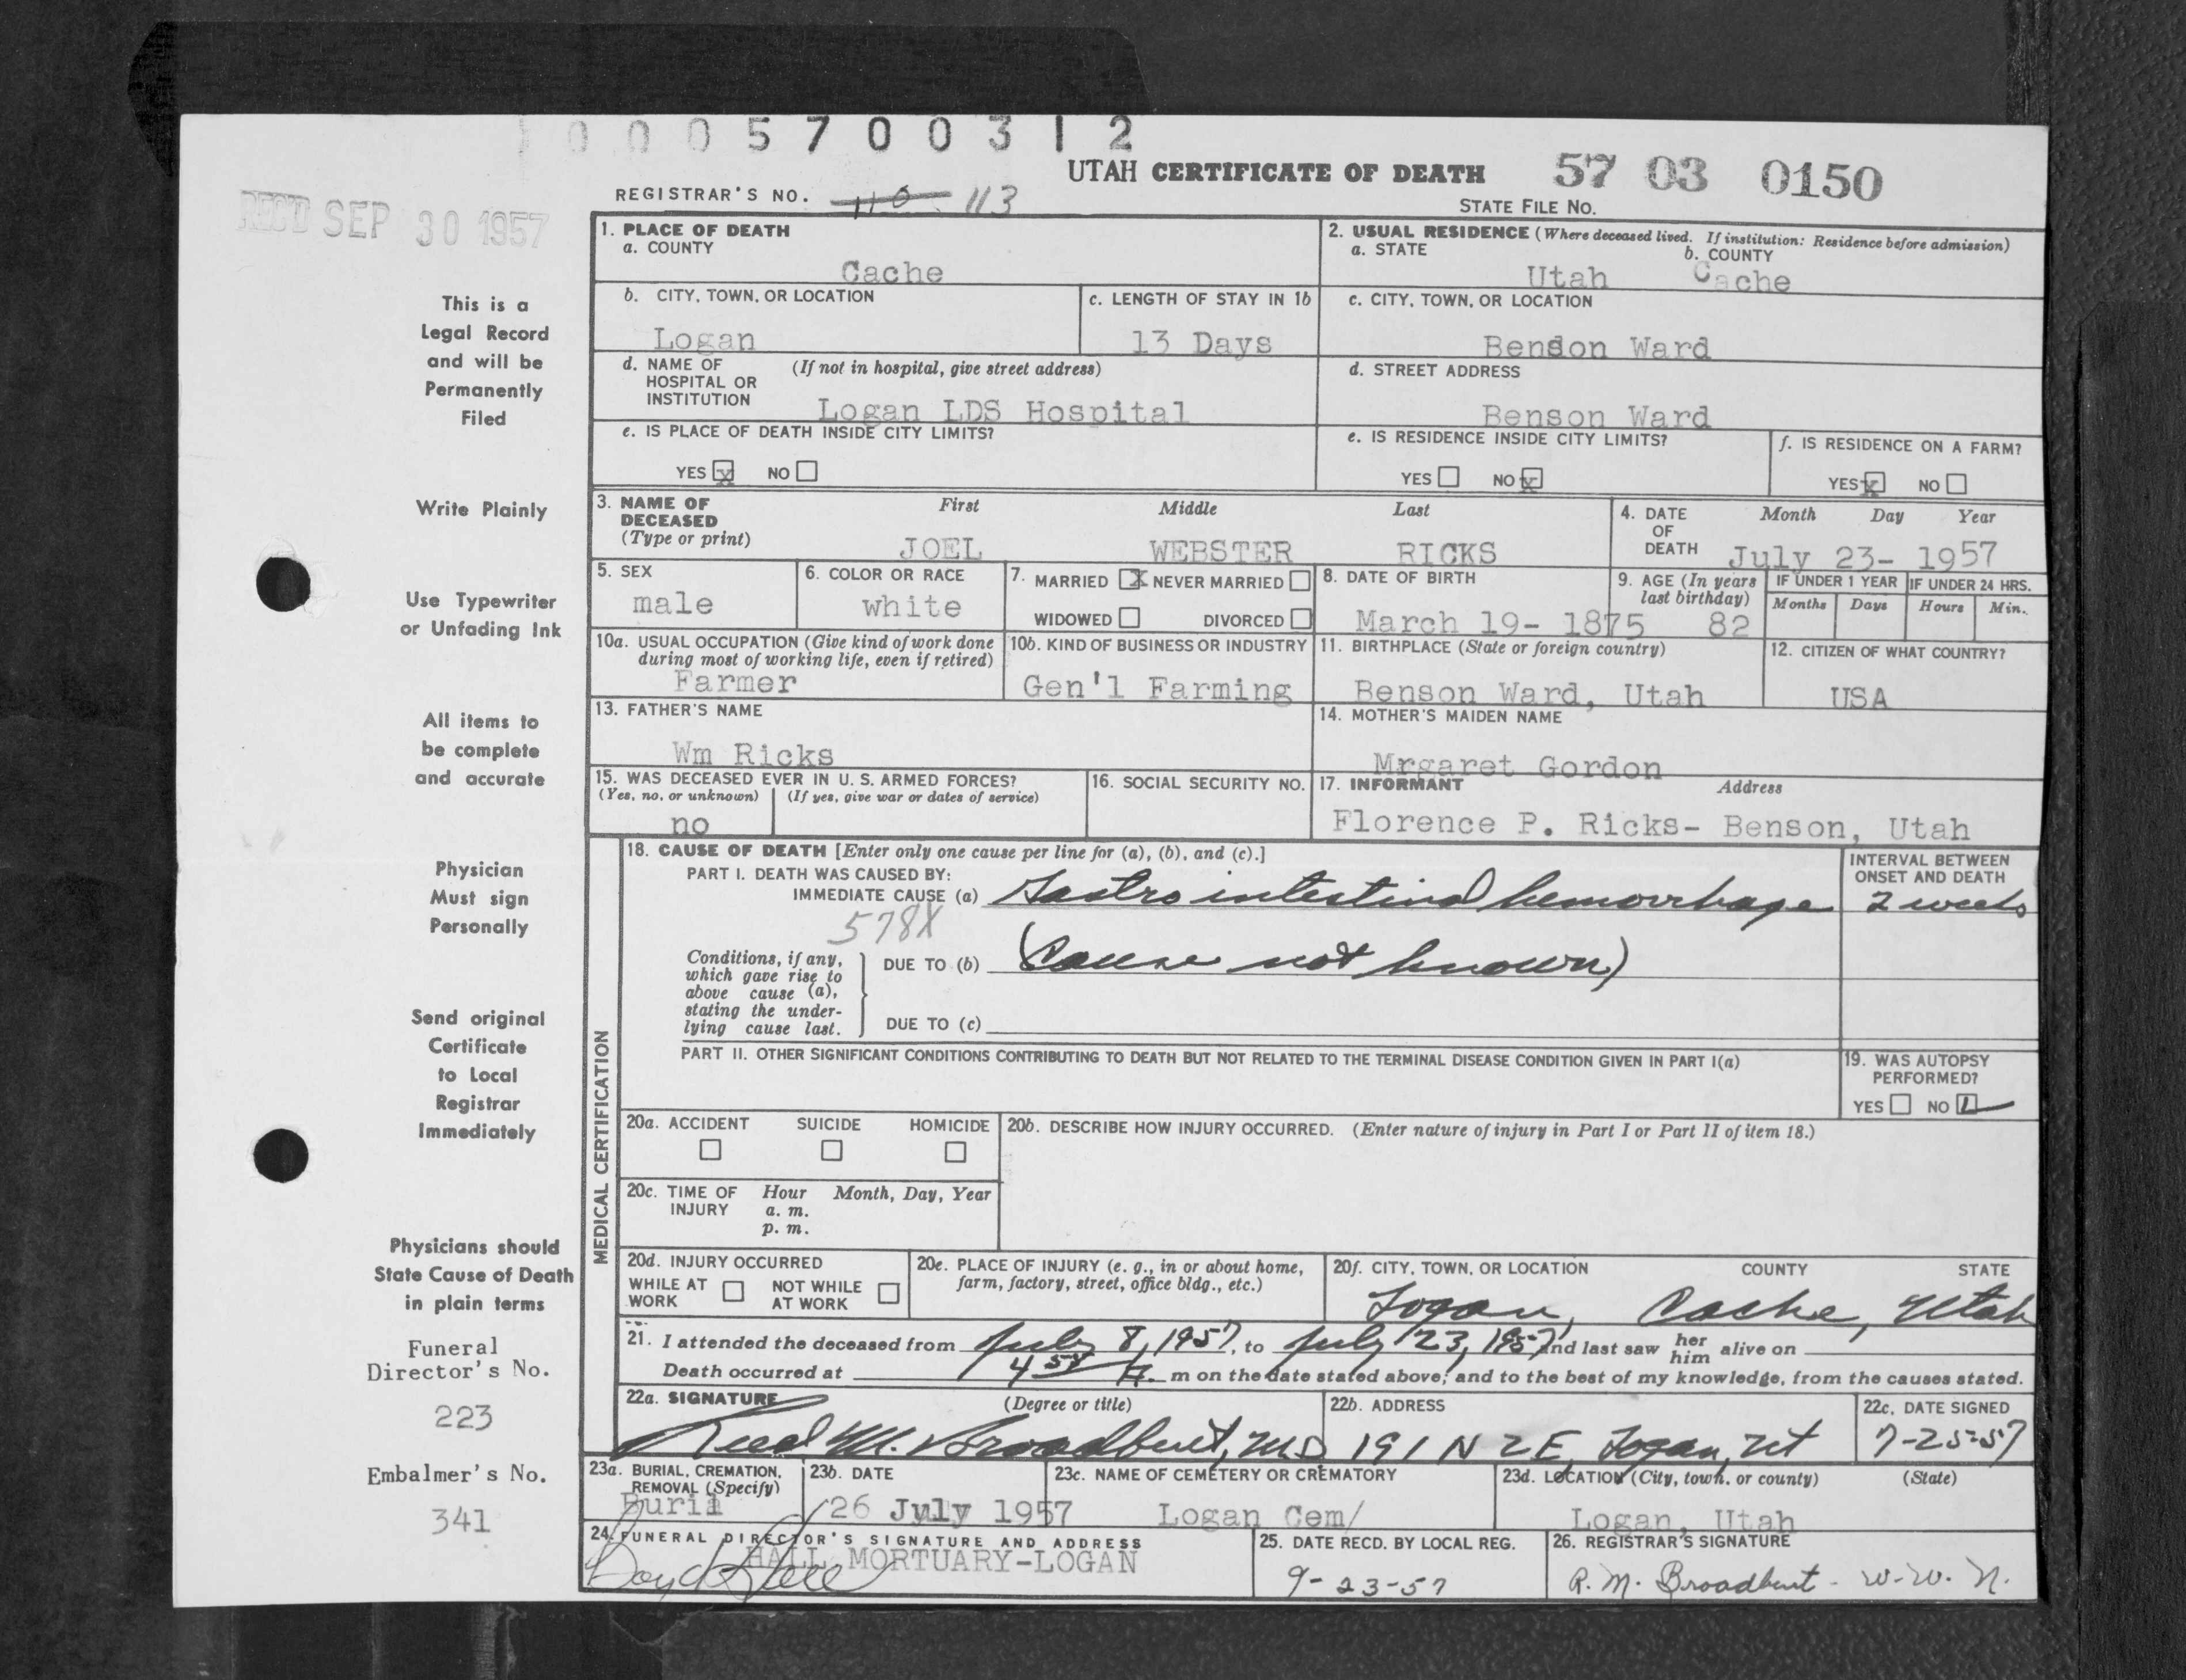 1 0 0 0 5 7 0 0 3 1 2
UTAH CERTIFICATE OF DEATH 57 03 0150
REGISTRAR'S NO. 110 113
STATE FILE NO.
REC'D SEP 30 1957
This is a
Legal Record
and will be
Permanently
Filed
Write Plainly
Use Typewriter
or Unfading Ink
All items to
be complete
and accurate
Physician
Must sign
Personally
Send original
Certificate
to Local
Registrar
Immediately
Physicians should
State Cause of Death
in plain terms
Funeral
Director's No.
223
Embalmer's No.
341
1. PLACE OF DEATH
a. COUNTY
Cache
2. USUAL RESIDENCE (Where deceased lived. If institution: Residence before admission)
a. STATE b. COUNTY
Utah Cache
b. CITY, TOWN, OR LOCATION
Logan
c. LENGTH OF STAY IN 1b
13 Days
c. CITY, TOWN, OR LOCATION
Benson Ward
d. NAME OF (If not in hospital, give street address)
HOSPITAL OR
INSTITUTION
Logan LDS Hospital
d. STREET ADDRESS
Benson Ward
e. IS PLACE OF DEATH INSIDE CITY LIMITS?
YES X NO
e. IS RESIDENCE INSIDE CITY LIMITS?
YES NO X
f. IS RESIDENCE ON A FARM?
YES X NO
3. NAME OF
DECEASED
(Type or print)
First Middle Last
JOEL WEBSTER RICKS
4. DATE
OF
DEATH
Month Day Year
July 23- 1957
5. SEX
male
6. COLOR OR RACE
white
7. MARRIED X NEVER MARRIED
WIDOWED DIVORCED
8. DATE OF BIRTH
March 19- 1875
9. AGE (In years
last birthday)
82
IF UNDER 1 YEAR IF UNDER 24 HRS.
Months Days Hours Min.
10a. USUAL OCCUPATION (Give kind of work done
during most of working life, even if retired)
Farmer
10b. KIND OF BUSINESS OR INDUSTRY
Gen'l Farming
11. BIRTHPLACE (State or foreign country)
Benson Ward, Utah
12. CITIZEN OF WHAT COUNTRY?
USA
13. FATHER'S NAME
Wm Ricks
14. MOTHER'S MAIDEN NAME
Mrgaret Gordon
15. WAS DECEASED EVER IN U. S. ARMED FORCES?
(Yes, no, or unknown) (If yes, give war or dates of service)
no
16. SOCIAL SECURITY NO.
17. INFORMANT Address
Florence P. Ricks- Benson, Utah
MEDICAL CERTIFICATION
18. CAUSE OF DEATH [Enter only one cause per line for (a), (b), and (c).]
PART I. DEATH WAS CAUSED BY:
IMMEDIATE CAUSE (a) Gastro intestinal hemorrhage
INTERVAL BETWEEN
ONSET AND DEATH
2 weeks
578X
Conditions, if any,
which gave rise to
above cause (a),
stating the under-
lying cause last.
DUE TO (b) (Cause not known)
DUE TO (c)
PART II. OTHER SIGNIFICANT CONDITIONS CONTRIBUTING TO DEATH BUT NOT RELATED TO THE TERMINAL DISEASE CONDITION GIVEN IN PART I(a)
19. WAS AUTOPSY
PERFORMED?
YES NO
20a. ACCIDENT SUICIDE HOMICIDE
20b. DESCRIBE HOW INJURY OCCURRED. (Enter nature of injury in Part I or Part II of item 18.)
20c. TIME OF INJURY Hour Month, Day, Year
a. m.
p. m.
20d. INJURY OCCURRED
WHILE AT WORK NOT WHILE AT WORK
20e. PLACE OF INJURY (e. g., in or about home,
farm, factory, street, office bldg., etc.)
20f. CITY, TOWN, OR LOCATION COUNTY STATE
Logan, Cache, Utah
21. I attended the deceased from July 8, 1957, to July 23, 1957 and last saw her him alive on
Death occurred at 4 54 A. m on the date stated above; and to the best of my knowledge, from the causes stated.
22a. SIGNATURE (Degree or title)
Reed M. Broadbent, MD
22b. ADDRESS
191 N 2 E, Logan, Ut
22c. DATE SIGNED
7-25-57
23a. BURIAL, CREMATION,
REMOVAL (Specify)
Buril
23b. DATE
26 July 1957
23c. NAME OF CEMETERY OR CREMATORY
Logan Cem/
23d. LOCATION (City, town, or county) (State)
Logan, Utah
24. FUNERAL DIRECTOR'S SIGNATURE AND ADDRESS
HALL MORTUARY-LOGAN
Boyd Hall
25. DATE RECD. BY LOCAL REG.
9-23-57
26. REGISTRAR'S SIGNATURE
R. M. Broadbent - W. W. N.